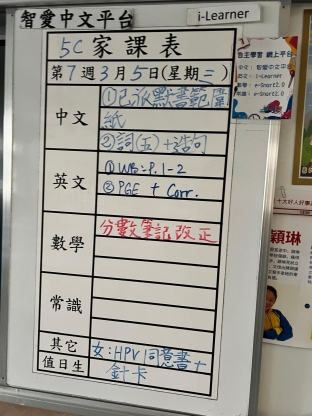 智愛中文平台
i-Learner
5C 家課表
第7週3月5日(星期二)
中文
①已派默書範圍
紙
②詞(五)+造句
英文
① WB: P.1-2
② PGE + Corr.
數學
分數筆記改正
常識
其它
女:HPV同意書+
值日生
針卡
自主學習 網上平台
中文:智愛中文平台
英文:i-Learner
數學:e-Smart2.0
常識:e-Smart2.0
穎琳